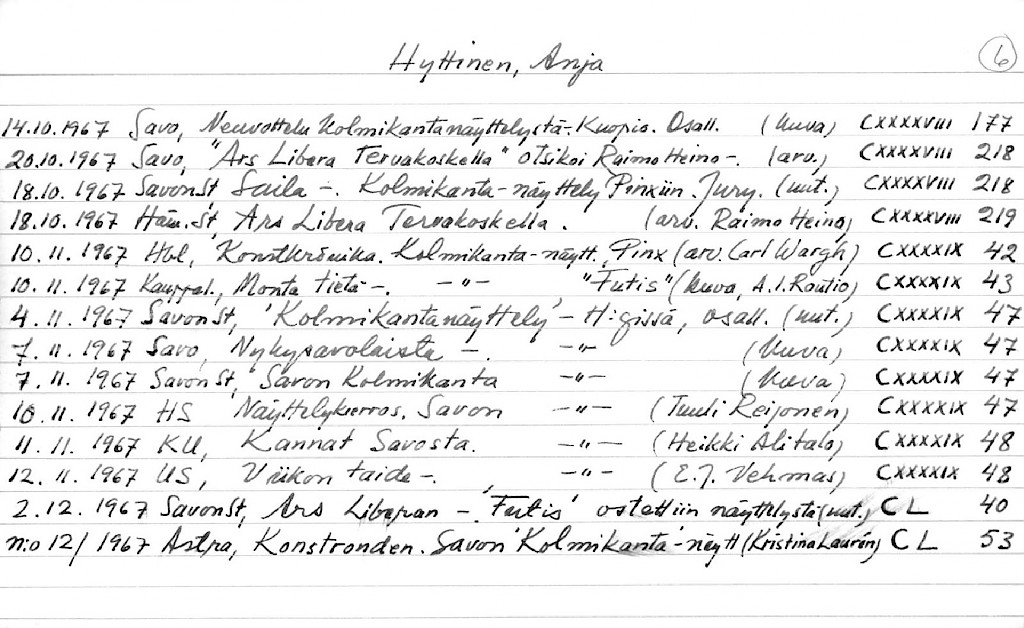 Hyttinen, Anja
6
14.10.1967 Savo, Neuvottelu Kolmikantanäyttelystä-. Kuopio. Osall. (kuva) CXXXXVIII 177
20.10.1967 Savo, "Ars Libera Tervakoskella" otsikoi Raimo Heino-. (arv.) CXXXXVIII 218
18.10.1967 SavonSt, Saila -. Kolmikanta-näyttely Pinxiin. Jury. (uut.) CXXXXVIII 218
18.10.1967 Häm.St, Ars Libera Tervakoskella. (arv. Raimo Heino) CXXXXVIII 219
10.11.1967 Hbl, Konstkrönika. Kolmikanta-näytt. Pinx (arv. Carl Wargh) CXXXXIX 42
10.11.1967 Kauppal., Monta tietä -. -"- "Futis" (kuva, A.I. Routio) CXXXXIX 43
4.11.1967 SavonSt, 'Kolmikantanäyttely' - H:gissä, osall. (uut.) CXXXXIX 47
7.11.1967 Savo, Nykysavolaista -. -"- (kuva) CXXXXIX 47
7.11.1967 SavonSt, Savon Kolmikanta -"- (kuva) CXXXXIX 47
10.11.1967 HS Näyttelykierros. Savon -"- (Tuuli Reijonen) CXXXXIX 47
11.11.1967 KU, Kannat Savosta. -"- (Heikki Alitalo) CXXXXIX 48
12.11.1967 US, Viikon taide -. -"- (E.J. Vehmas) CXXXXIX 48
2.12.1967 SavonSt, Ars Liberan -. 'Futis' ostettiin näyttelystä (uut.) CL 40
n:o 12/1967 Astra, Konstronden. Savon 'Kolmikanta'-näytt (Kristina Laurén) CL 53